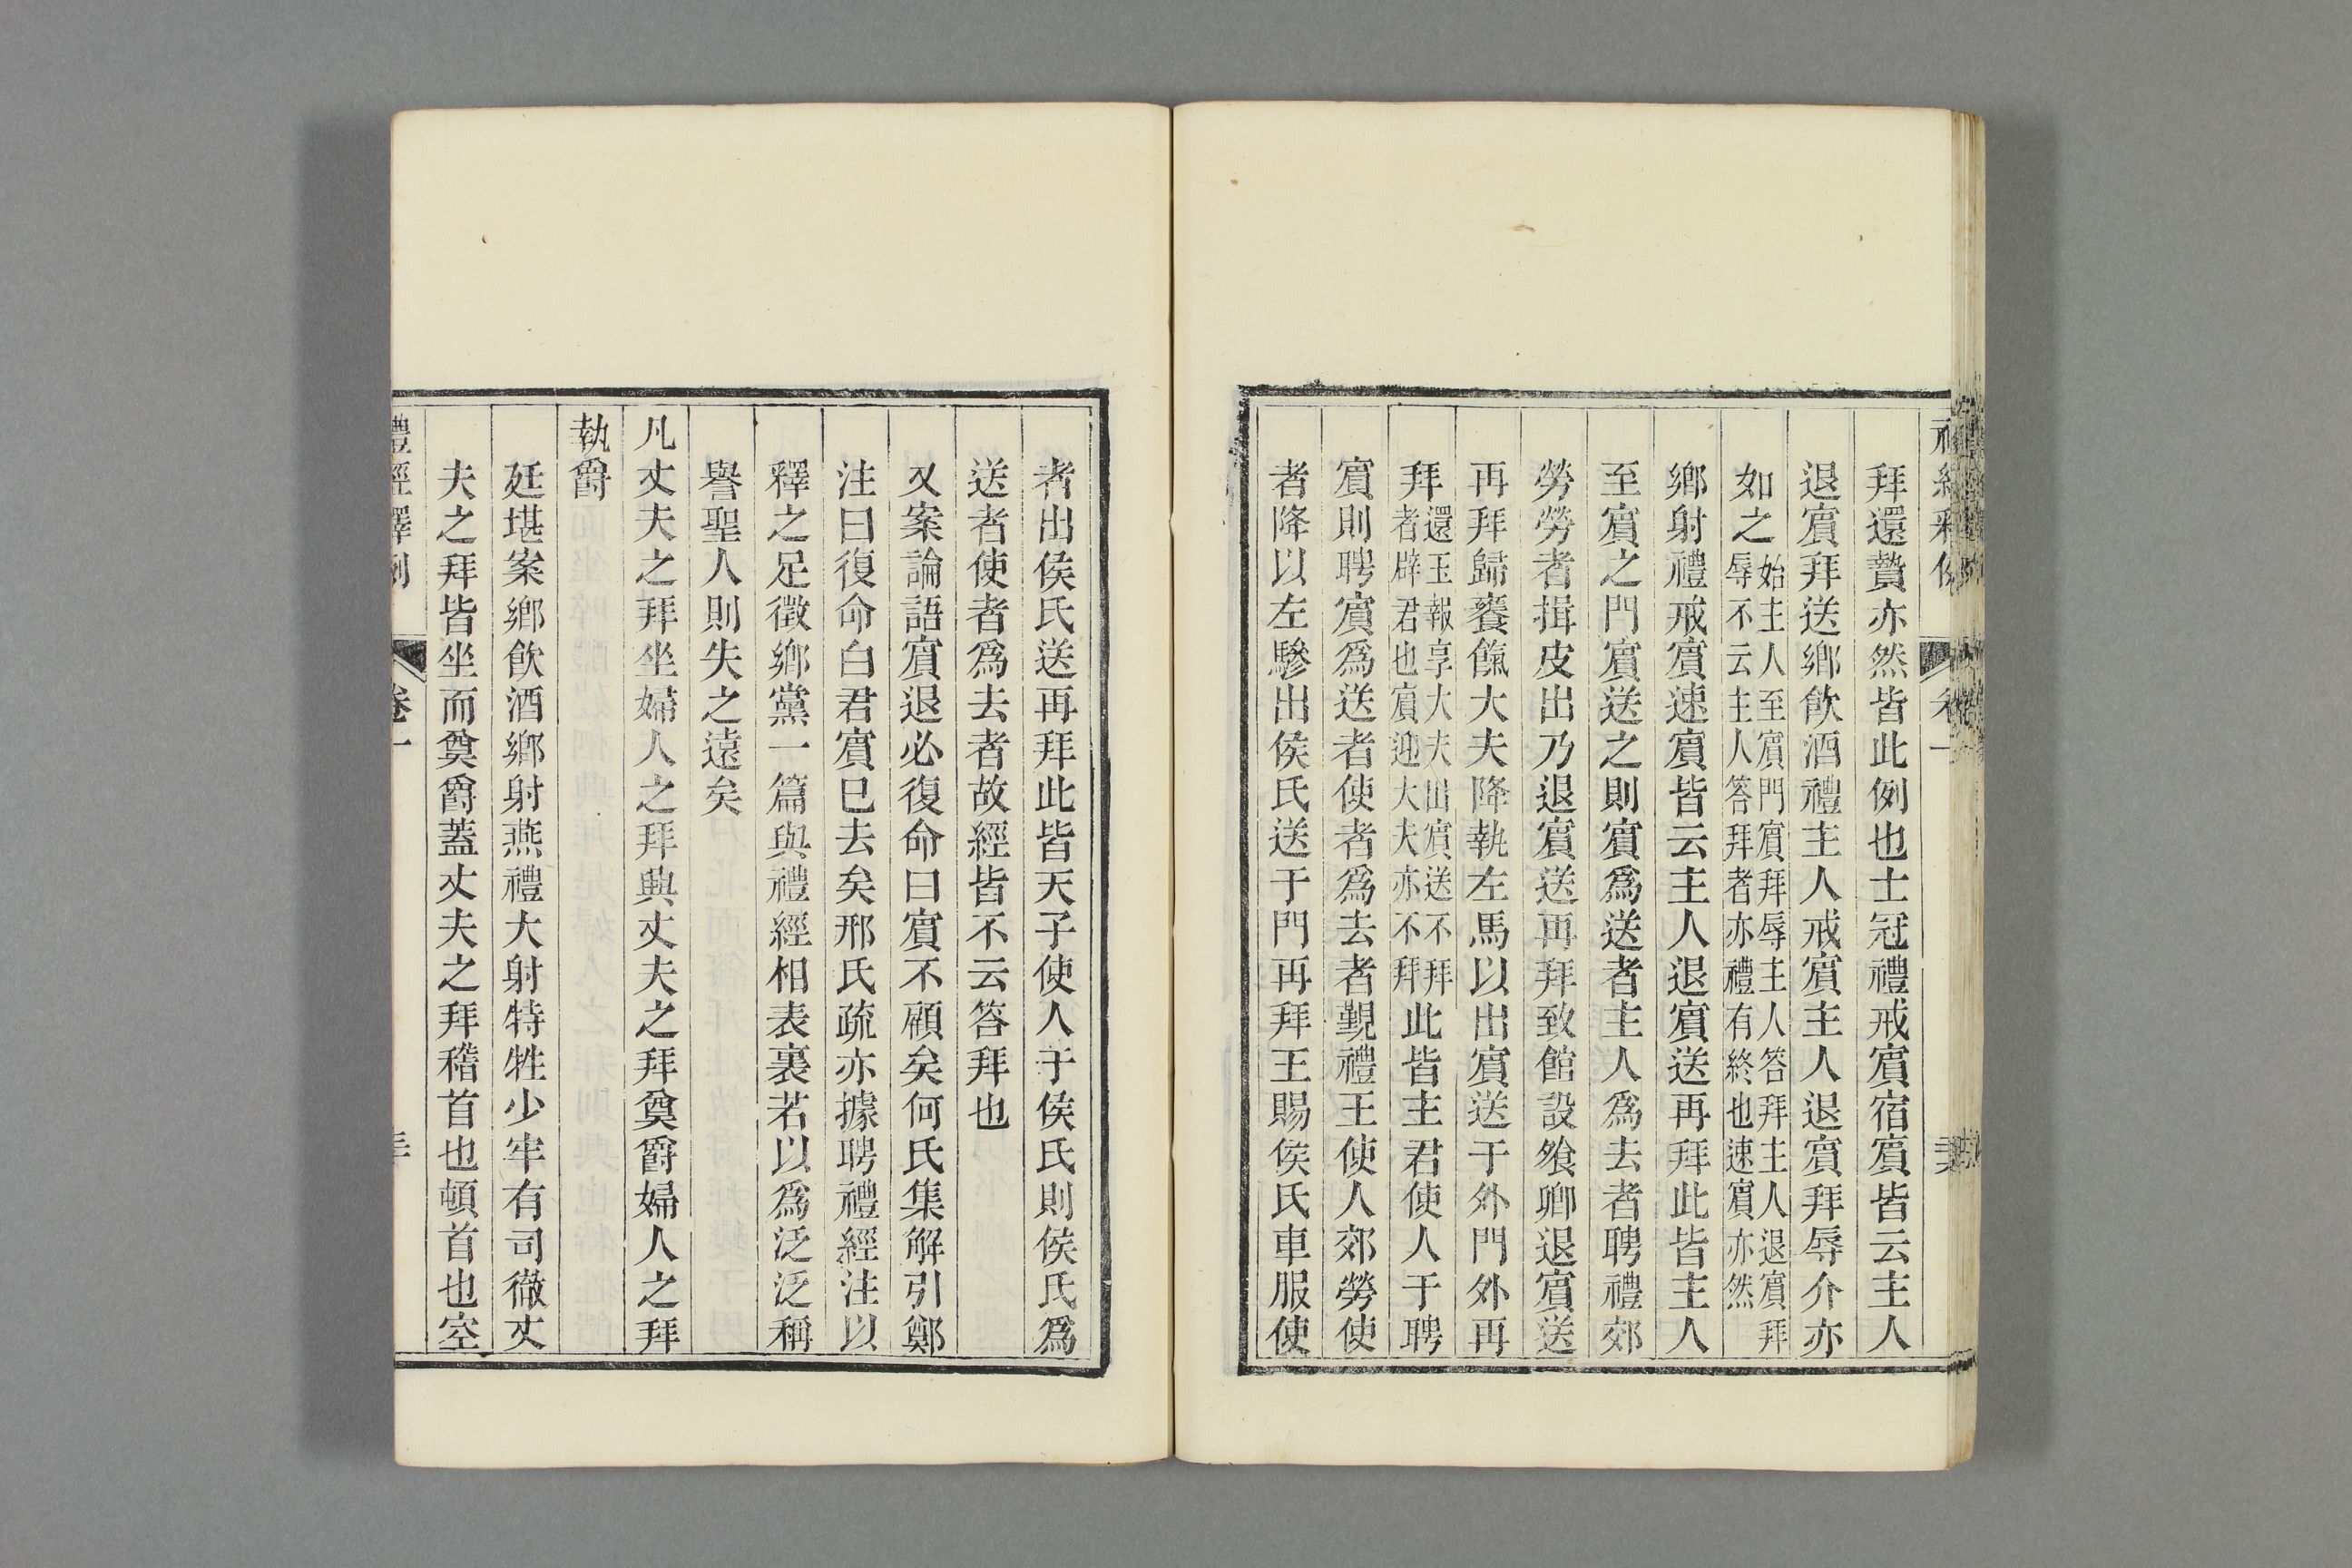 拜還贄亦然皆此例也士冠禮戒賓宿賓皆云主人
退賓拜送鄉飲酒禮主人戒賓主人退賓拜辱介亦
如之始主人至賓門賓拜辱主人答拜主人退賓拜
辱不云主人答拜者亦禮有終也速賓亦然
鄉射禮戒賓速賓皆云主人退賓送再拜此皆主人
至賓之門賓送之則賓爲送者主人爲去者聘禮郊
勞勞者揖皮出乃退賓送再拜致館設飧卿退賓送
再拜歸饔餼大夫降執左馬以出賓送于外門外再
拜還玉報享大夫出賓送不拜
者辟君也賓迎大夫亦不拜此皆主君使人于聘
賓則聘賓爲送者使者爲去者覲禮王使人郊勞使
者降以左驂出侯氏送于門再拜王賜侯氏車服使
者出侯氏送再拜此皆天子使人于侯氏則侯氏爲
送者使者爲去者故經皆不云答拜也
又案論語賓退必復命曰賓不顧矣何氏集解引鄭
注曰復命白君賓已去矣邢氏疏亦據聘禮經注以
釋之足徵鄉黨一篇與禮經相表裏若以爲泛泛稱
譽聖人則失之遠矣
凡丈夫之拜坐婦人之拜興丈夫之拜奠爵婦人之拜
執爵
廷堪案鄉飲酒鄉射燕禮大射特牲少牢有司徹丈
夫之拜皆坐而奠爵蓋丈夫之拜稽首也頓首也空
禮經釋例 卷一